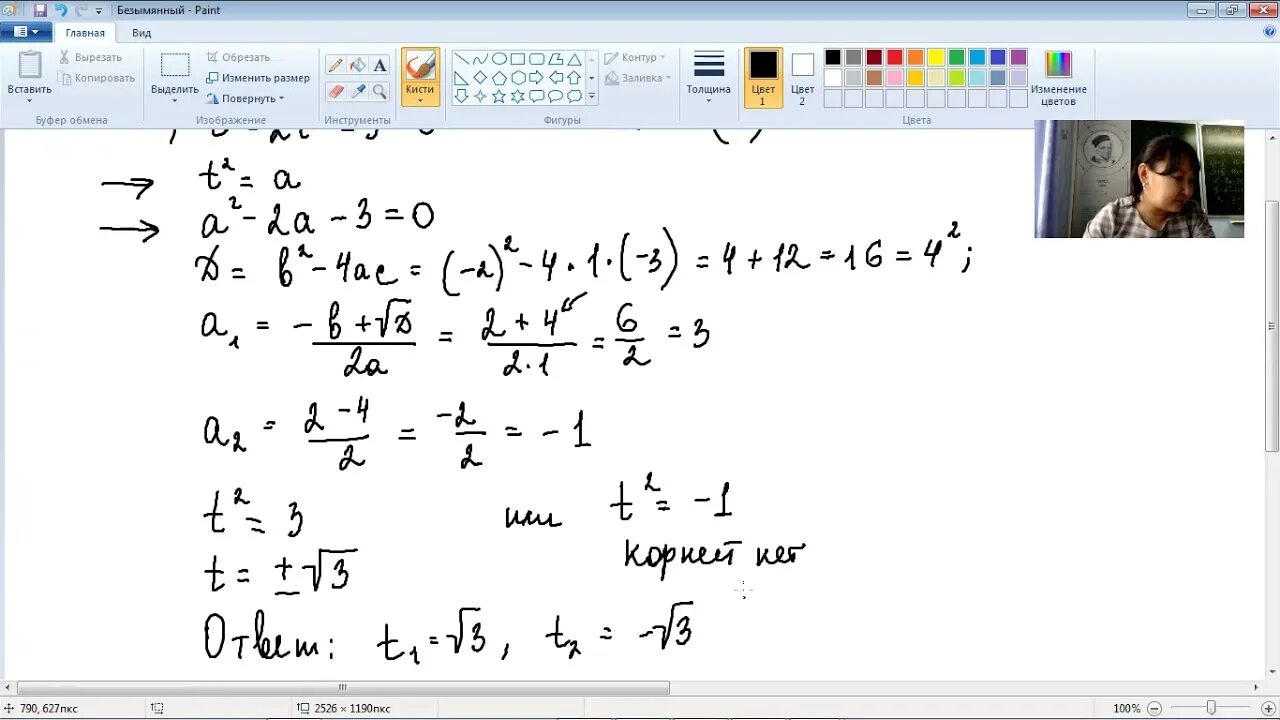 Безымянный - Paint
Главная Вид
Вставить
Вырезать
Копировать
Буфер обмена
Выделить
Обрезать
Изменить размер
Повернуть
Изображение
A
Инструменты
Кисти
Контур
Заливка
Фигуры
Толщина
Цвет 1
Цвет 2
Изменение цветов
Цвета
t² = a
a² - 2a - 3 = 0
D = b² - 4ac = (-2)² - 4 · 1 · (-3) = 4 + 12 = 16 = 4²;
a₁ = (-b + √D)/(2a) = (2 + 4)/(2·1) = 6/2 = 3
a₂ = (2 - 4)/2 = -2/2 = -1
t² = 3 или t² = -1
t = ±√3 корней нет
Ответ: t₁ = √3, t₂ = -√3
790, 627пкс
2526 × 1190пкс
100%